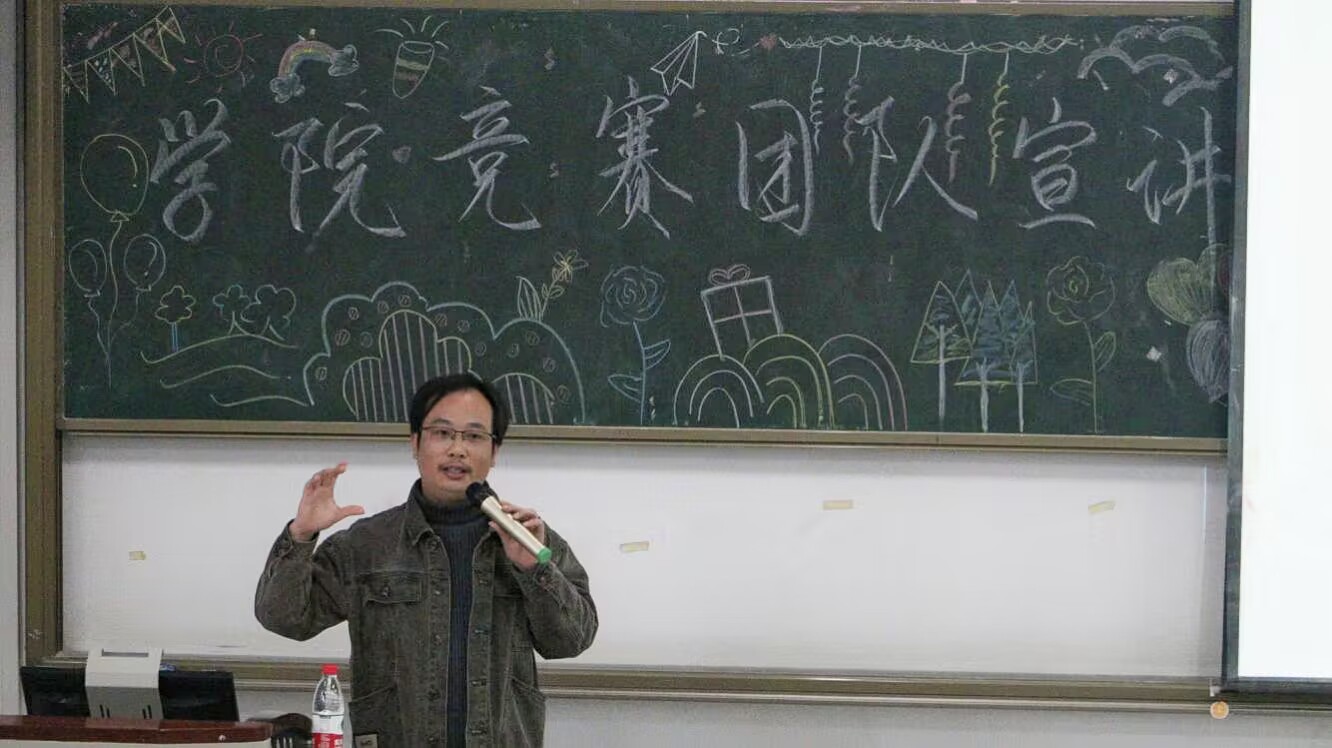 学院竞赛团队宣讲